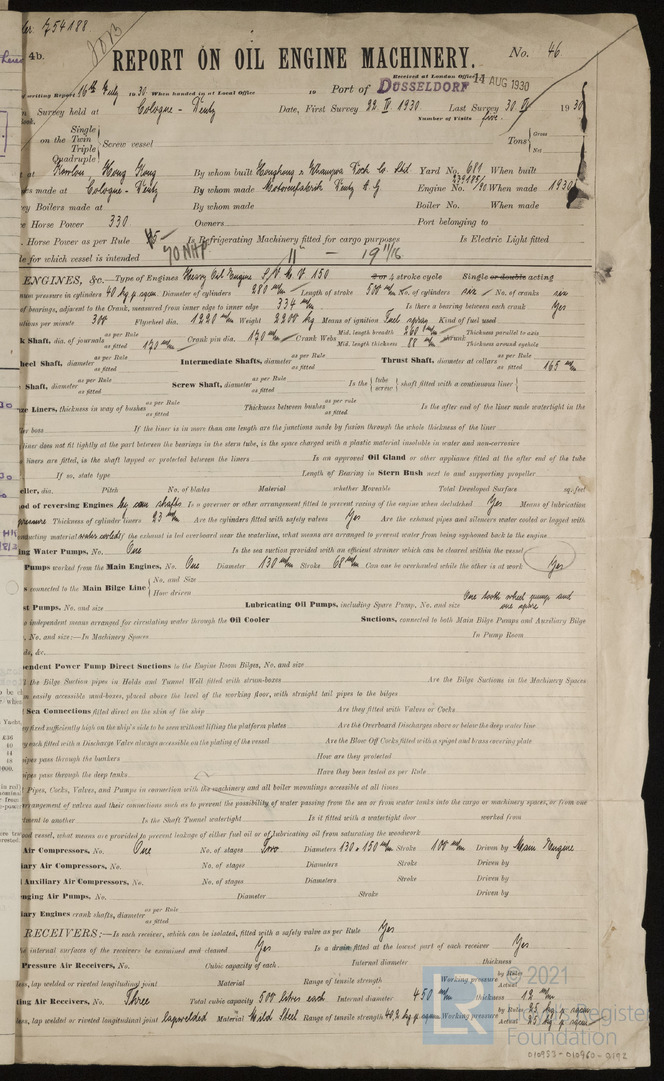 4b.
REPORT ON OIL ENGINE MACHINERY.
No. 46
Received at London Office 14 AUG 1930
writing Report 16th July 1930 When handed in at Local Office 19 Port of DÜSSELDORF
Survey held at Cologne - Deutz Date, First Survey 22 IV 1930 Last Survey 30 1930
Number of Visits five
on the Single Twin Triple Quadruple Screw vessel Tons Gross Net
at Kowloon, Hong Kong By whom built Hongkong & Whampoa Dock Co. Ltd Yard No. 681 When built
s made at Cologne - Deutz By whom made Motorenfabrik Deutz A.G Engine No. When made 1930
y Boilers made at By whom made Boiler No. When made
Horse Power 330 Owners Port belonging to
Horse Power as per Rule 70 NHP Is Refrigerating Machinery fitted for cargo purposes Is Electric Light fitted
e for which vessel is intended 11" - 19 11/16
ENGINES, &c. Type of Engines Heavy Oil Engine 2 or 4 stroke cycle Single or double acting
um pressure in cylinders 40 kg p. sqcm Diameter of cylinders 280 m/m Length of stroke 500 m/m No. of cylinders six No. of cranks six
of bearings, adjacent to the Crank, measured from inner edge to inner edge 334 m/m Is there a bearing between each crank Yes
utions per minute 300 Flywheel dia. 1220 m/m Weight 2200 kg Means of ignition Fuel spray Kind of fuel used
k Shaft, dia. of journals as per Rule as fitted 170 m/m Crank pin dia. 170 m/m Crank Webs Mid. length breadth 260 m/m Mid. length thickness 88 m/m shrunk Thickness parallel to axis Thickness around eyehole
heel Shaft, diameter as per Rule as fitted Intermediate Shafts, diameter as per Rule as fitted Thrust Shaft, diameter at collars as per Rule as fitted 165 m/m
Shaft, diameter as per Rule as fitted Screw Shaft, diameter as per Rule as fitted Is the tube screw shaft fitted with a continuous liner
ze Liners, thickness in way of bushes as per Rule as fitted Thickness between bushes as per rule as fitted Is the after end of the liner made watertight in the
er boss If the liner is in more than one length are the junctions made by fusion through the whole thickness of the liner
liner does not fit tightly at the part between the bearings in the stern tube, is the space charged with a plastic material insoluble in water and non-corrosive
liners are fitted, is the shaft lapped or protected between the liners Is an approved Oil Gland or other appliance fitted at the after end of the tube
If so, state type Length of Bearing in Stern Bush next to and supporting propeller
eller, dia. Pitch No. of blades Material whether Moveable Total Developed Surface sq. feet
od of reversing Engines by cam shafts Is a governor or other arrangement fitted to prevent racing of the engine when declutched Yes Means of lubrication
pressure Thickness of cylinder liners 23 m/m Are the cylinders fitted with safety valves Yes Are the exhaust pipes and silencers water cooled or lagged with
onducting material water cooled If the exhaust is led overboard near the waterline, what means are arranged to prevent water from being syphoned back to the engine
ing Water Pumps, No. One Is the sea suction provided with an efficient strainer which can be cleared within the vessel
Pumps worked from the Main Engines, No. One Diameter 130 m/m Stroke 68 m/m Can one be overhauled while the other is at work Yes
s connected to the Main Bilge Line No. and Size How driven
st Pumps, No. and size Lubricating Oil Pumps, including Spare Pump, No. and size One tooth wheel pump and one spare
o independent means arranged for circulating water through the Oil Cooler Suctions, connected to both Main Bilge Pumps and Auxiliary Bilge
, No. and size:—In Machinery Spaces In Pump Room
ds, &c.
endent Power Pump Direct Suctions to the Engine Room Bilges, No. and size
l the Bilge Suction pipes in Holds and Tunnel Well fitted with strum-boxes Are the Bilge Suctions in the Machinery Spaces
easily accessible mud-boxes, placed above the level of the working floor, with straight tail pipes to the bilges
Sea Connections fitted direct on the skin of the ship Are they fitted with Valves or Cocks
y fixed sufficiently high on the ship's side to be seen without lifting the platform plates Are the Overboard Discharges above or below the deep water line
y each fitted with a Discharge Valve always accessible on the plating of the vessel Are the Blow Off Cocks fitted with a spigot and brass covering plate
pipes pass through the bunkers How are they protected
pipes pass through the deep tanks Have they been tested as per Rule
Pipes, Cocks, Valves, and Pumps in connection with the machinery and all boiler mountings accessible at all times
rrangement of valves and their connections such as to prevent the possibility of water passing from the sea or from water tanks into the cargo or machinery spaces, or from one
tment to another Is the Shaft Tunnel watertight Is it fitted with a watertight door worked from
ood vessel, what means are provided to prevent leakage of either fuel oil or of lubricating oil from saturating the woodwork
Air Compressors, No. One No. of stages Two Diameters 130 & 150 m/m Stroke 100 m/m Driven by Main Engine
iary Air Compressors, No. No. of stages Diameters Stroke Driven by
Auxiliary Air Compressors, No. No. of stages Diameters Stroke Driven by
enging Air Pumps, No. Diameter Stroke Driven by
iary Engines crank shafts, diameter as per Rule as fitted
RECEIVERS:—Is each receiver, which can be isolated, fitted with a safety valve as per Rule Yes
he internal surfaces of the receivers be examined and cleaned Yes Is a drain fitted at the lowest part of each receiver Yes
Pressure Air Receivers, No. Cubic capacity of each Internal diameter thickness
ess, lap welded or riveted longitudinal joint Material Range of tensile strength Working pressure by Rules Actual
ing Air Receivers, No. Three Total cubic capacity 500 litres each Internal diameter 450 m/m thickness 12 m/m
ess, lap welded or riveted longitudinal joint lapwelded Material Mild Steel Range of tensile strength Working pressure by Rules 25 kg p. sqcm Actual 25 kg p. sqcm
© 2021
Lloyd's Register
Foundation
010953-010960-0192